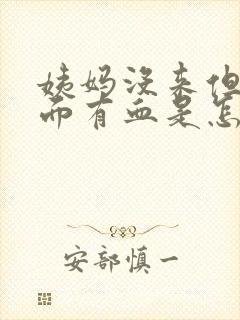 姨妈没来但
而有血是怎
安部慎一